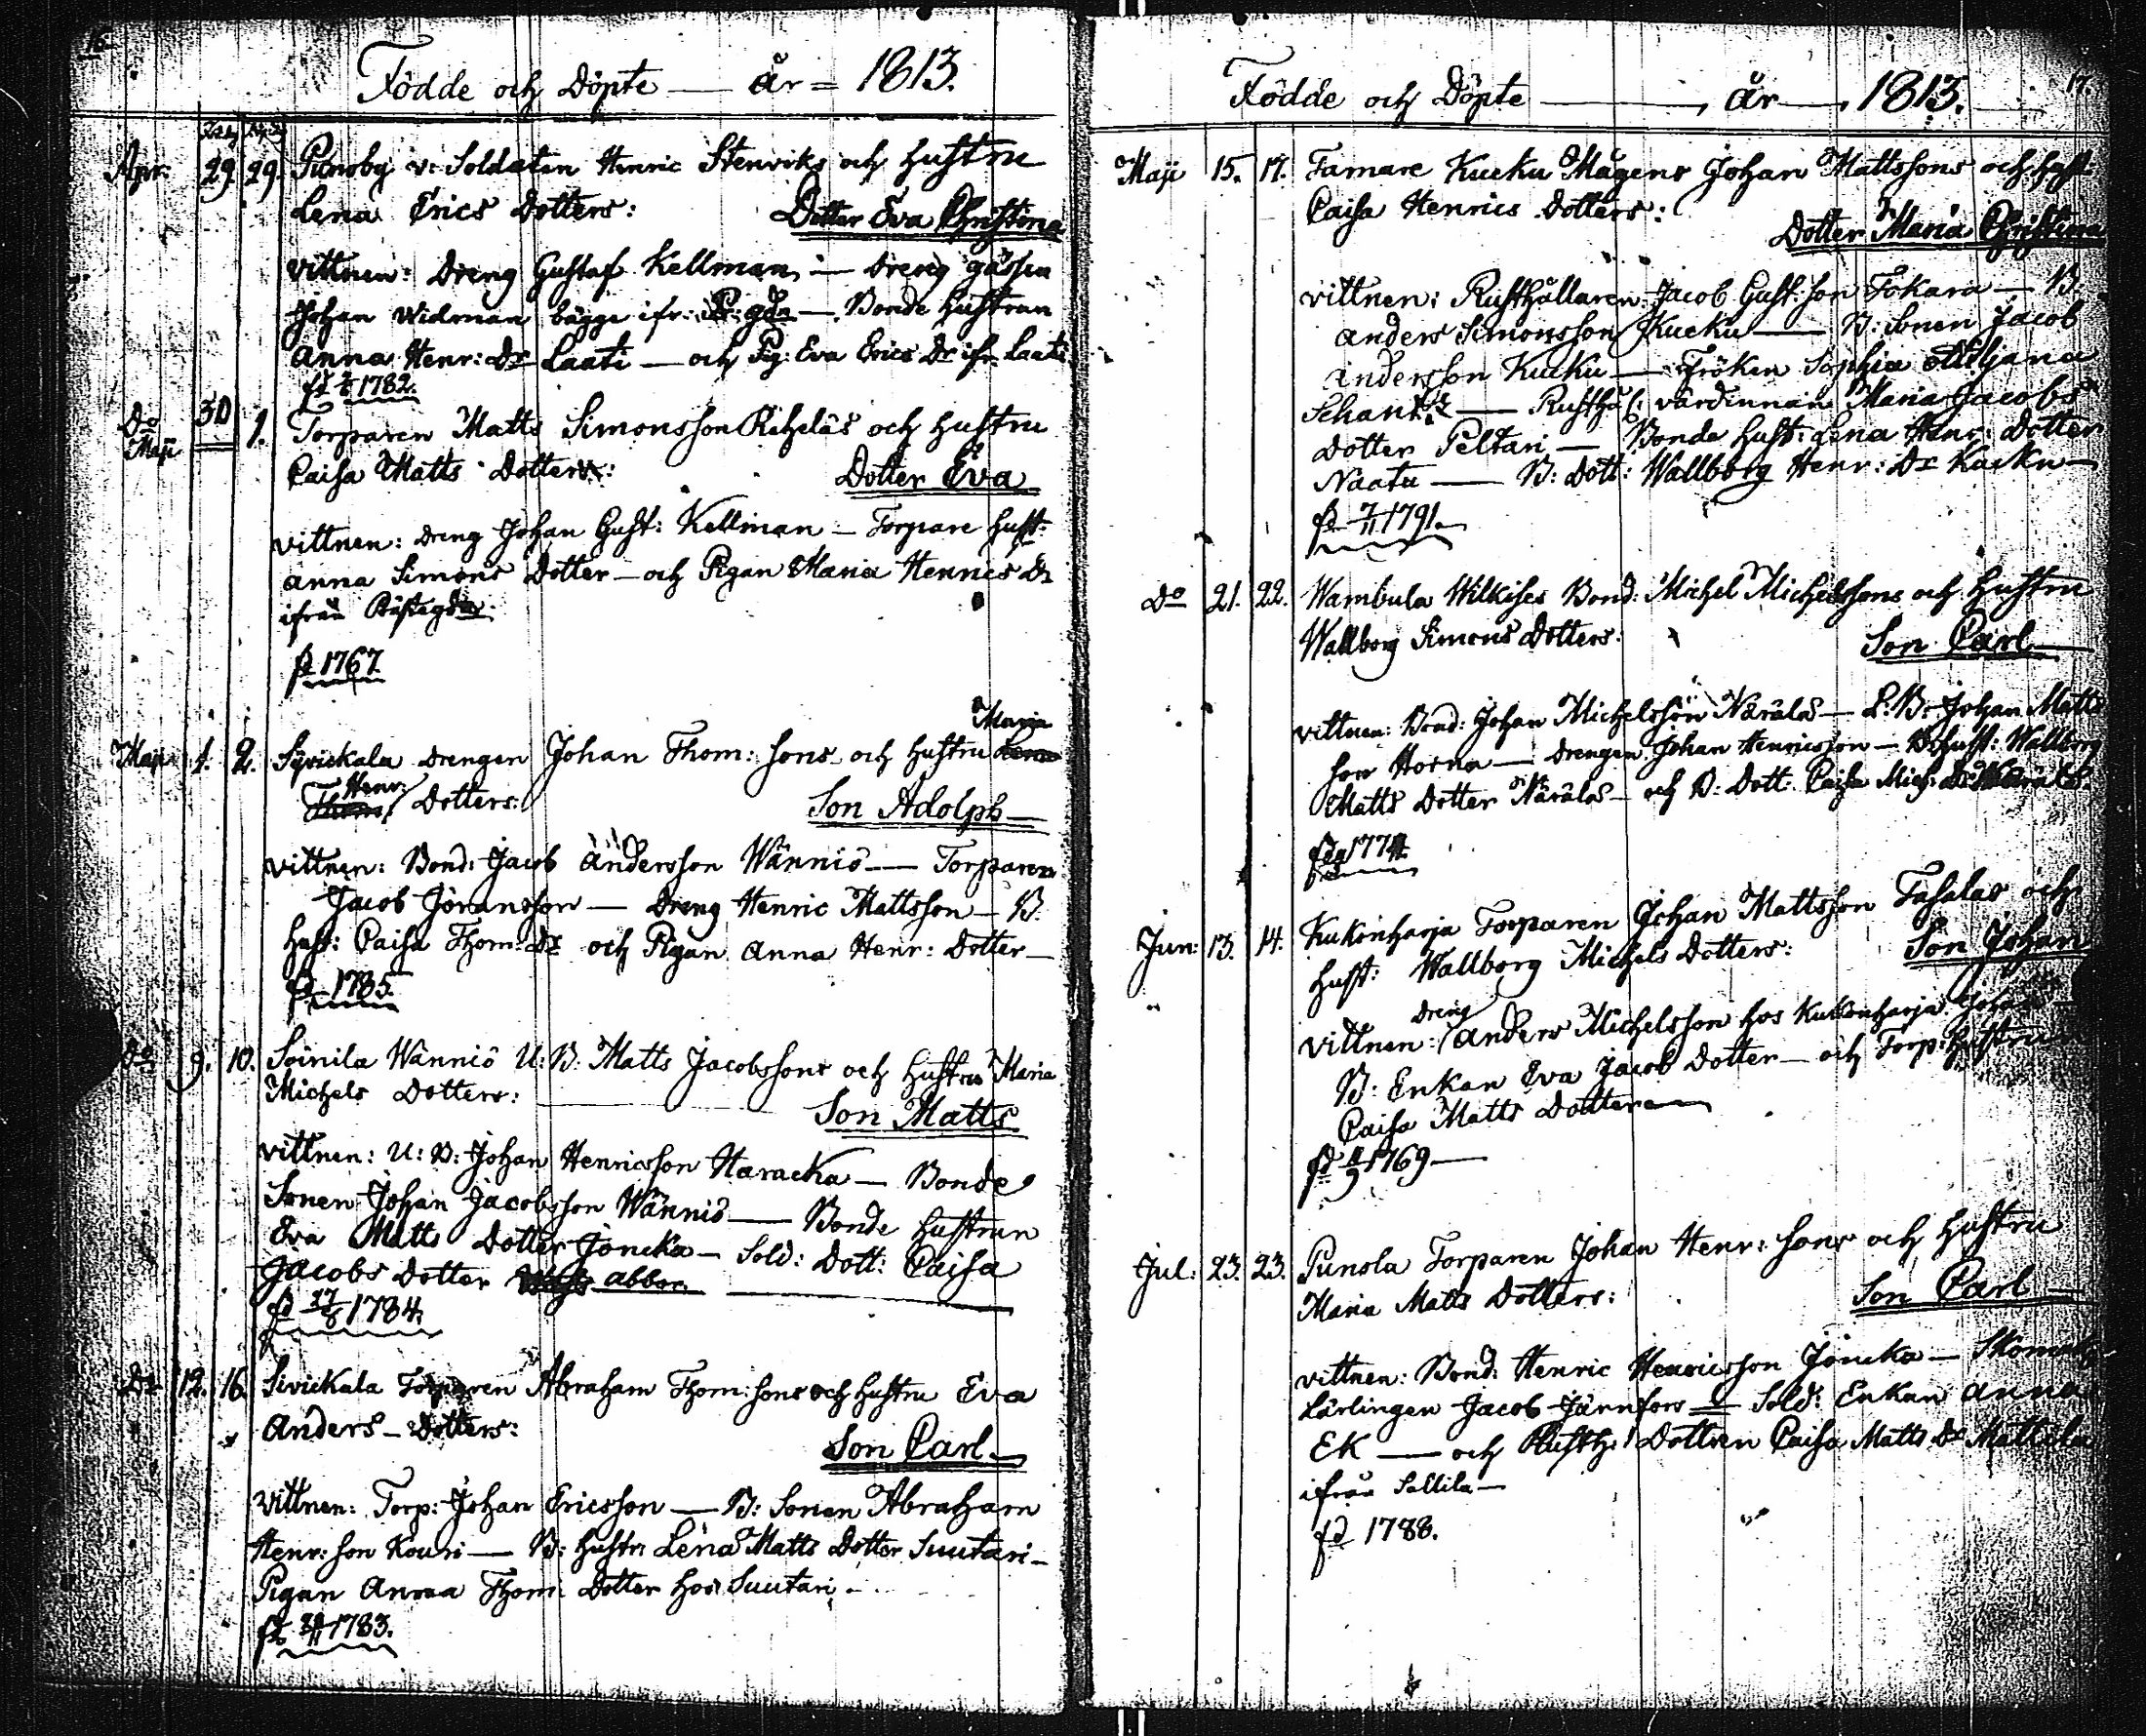 16.
Födde och Döpte — år = 1813.
Apr: 29 29. v: Soldaten Henric Stenviks och hustru
Lena Erics Dotters: Dotter Eva Christina
vittnen: Dreng Gustaf Kellman — Dreng gåssen
Johan Widman bägge ifr: Pr: gdn — Bonde hustrun
Anna Henr: Dr Laati — och Pig: Eva Erics Dr ifr. Laati
fd 1782.
Do 30
Maji 1. Torparen Matts Simonsson och hustru
Caisa Matts Dotters: Dotter Eva
vittnen: Dreng Johan Gust: Kellman — Torpare hust:
Anna Simons Dotter — och Pigan Maria Henrics Dr
ifrån
fd 1767
Maria
Maji 1. 2. Syvickala drengen Johan Thom: sons och hustru Lena
Henr:
Thom: Dotters: Son Adolph —
vittnen: Bond: Jacob Andersson Wänniö — Torparen
Jacob Jöransson — Dreng Henric Mattsson — B:
hust: Caisa Thom: Dr och Pigan Anna Henr: Dotter —
fd 1785.
Do 9. 10. Soinila Wänniö U: B: Matts Jacobssons och hustru Maria
Michels Dotters: Son Matts
vittnen: U: B: Johan Henricsson Haracka — Bonde
Sonen Johan Jacobsson Wänniö — Bonde hustrun
Eva Matts Dotter Jöncka — Sold: Dott: Caisa
Jacobs Dotter abbor.
fd 1784.
Do 12. 16. Sivickala Torparen Abraham Thom: sons och hustru Eva
Anders — Dotters:
Son Carl —
Vittnen: Torp: Johan Ericsson — B: Sonen Abraham
Henr: son Kouri — B: hustr: Lena Matts Dotter Suutari —
Pigan Anna Thom: Dotter hos Suutari —
fd 1783.
17.
Födde och Döpte —, år —, 1813.
Maji 15. 17. Tamare Kucku Mågens Johan Mattssons och hust:
Caisa Henrics Dotters:
Dotter Maria Christina
vittnen: Rusthållaren Jacob Gust: son Tokara — B.
Anders Simonsson Kucku — B: Sonen Jacob
Andersson Kucku — Fröken Sophia
— Rusthå: värdinnan Maria Jacobs
Dotter Peltari — Bonde hust: Lena Henr: Dotter
Naatu — B: Dott: Wallborg Henr: Dr Kucku —
fd 7/11 1791.
Do 21. 22. Wambula Wilkises Bond: Michel Michelssons och hustru
Wallborg Simons Dotters:
Son Carl —
vittnen: Bond: Johan Michelsson Närälä — L: B: Johan Matts
son Horna — drengen Johan Henricsson — B: hust: Wallborg
Matts Dotter Närälä — och B: Dott: Caisa Mich: Dr Närälä.
Jun: 13. 14. Kukonharja Torparen Johan Mattsson och
hust: Wallborg Michels Dotters: Son Johan
Dreng
vittnen: Anders Michelsson hos Kukonharja
B: Enkan Eva Jacob Dotter — och Torp: hustru
Caisa Matts Dotter —
fd 1769 —
Jul: 23. 23. Punola Torparen Johan Henr: sons och hustru
Maria Matts Dotters: Son Carl —
vittnen: Bond: Henric Henricsson Jöncka —
Lärlingen Jacob Järnfors — Sold: Enkan Anna
Ek — och Rusth: Dottren Caisa Matts Dr Mattila
ifrån Sallila —
fd 1788.